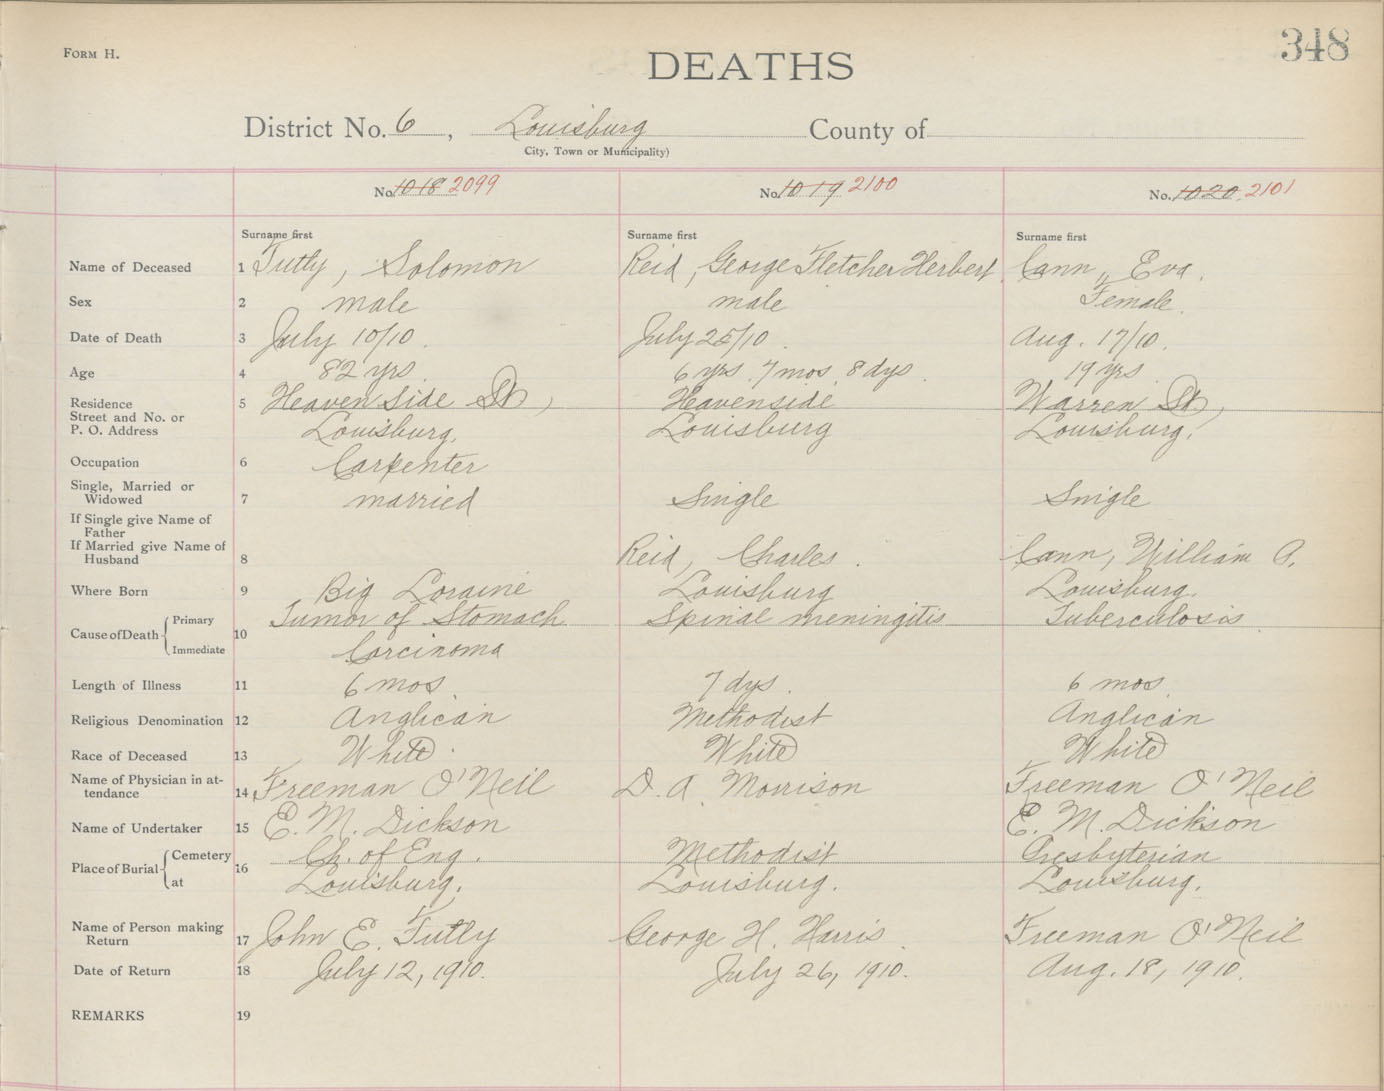 FORM H.
348
DEATHS
District No. 6, Louisburg County of
City, Town or Municipality)
No. 1018 2099 No. 1019 2100 No. 1020. 2101
Surname first Surname first Surname first
Name of Deceased 1 Tutty, Solomon Reid, George Fletcher Herbert. Cann, Eva.
Sex 2 male male Female.
Date of Death 3 July 10/10. July 25/10. Aug. 17/10.
Age 4 82 yrs. 6 yrs. 7 mos. 8 dys. 19 yrs.
Residence 5 Heavenside St, Heavenside Warren St,
Street and No. or
P. O. Address Louisburg. Louisburg Louisburg.
Occupation 6 Carpenter
Single, Married or
Widowed 7 married Single Single
If Single give Name of
Father
If Married give Name of
Husband 8 Reid, Charles. Cann, William A.
Where Born 9 Big Loraine Louisburg Louisburg.
Cause of Death Primary 10 Tumor of Stomach Spinal meningitis Tuberculosis.
Immediate Carcinoma
Length of Illness 11 6 mos. 7 dys. 6 mos.
Religious Denomination 12 Anglican Methodist Anglican
Race of Deceased 13 White. White White
Name of Physician in at-
tendance 14 Freeman O'Neil D. A. Morrison Freeman O'Neil
Name of Undertaker 15 E. M. Dickson E. M. Dickson
Place of Burial Cemetery 16 Ch. of Eng. Methodist Presbyterian
at Louisburg. Louisburg. Louisburg.
Name of Person making
Return 17 John E. Tutty George H. Harris. Freeman O'Neil
Date of Return 18 July 12, 1910. July 26, 1910. Aug. 18, 1910.
REMARKS 19